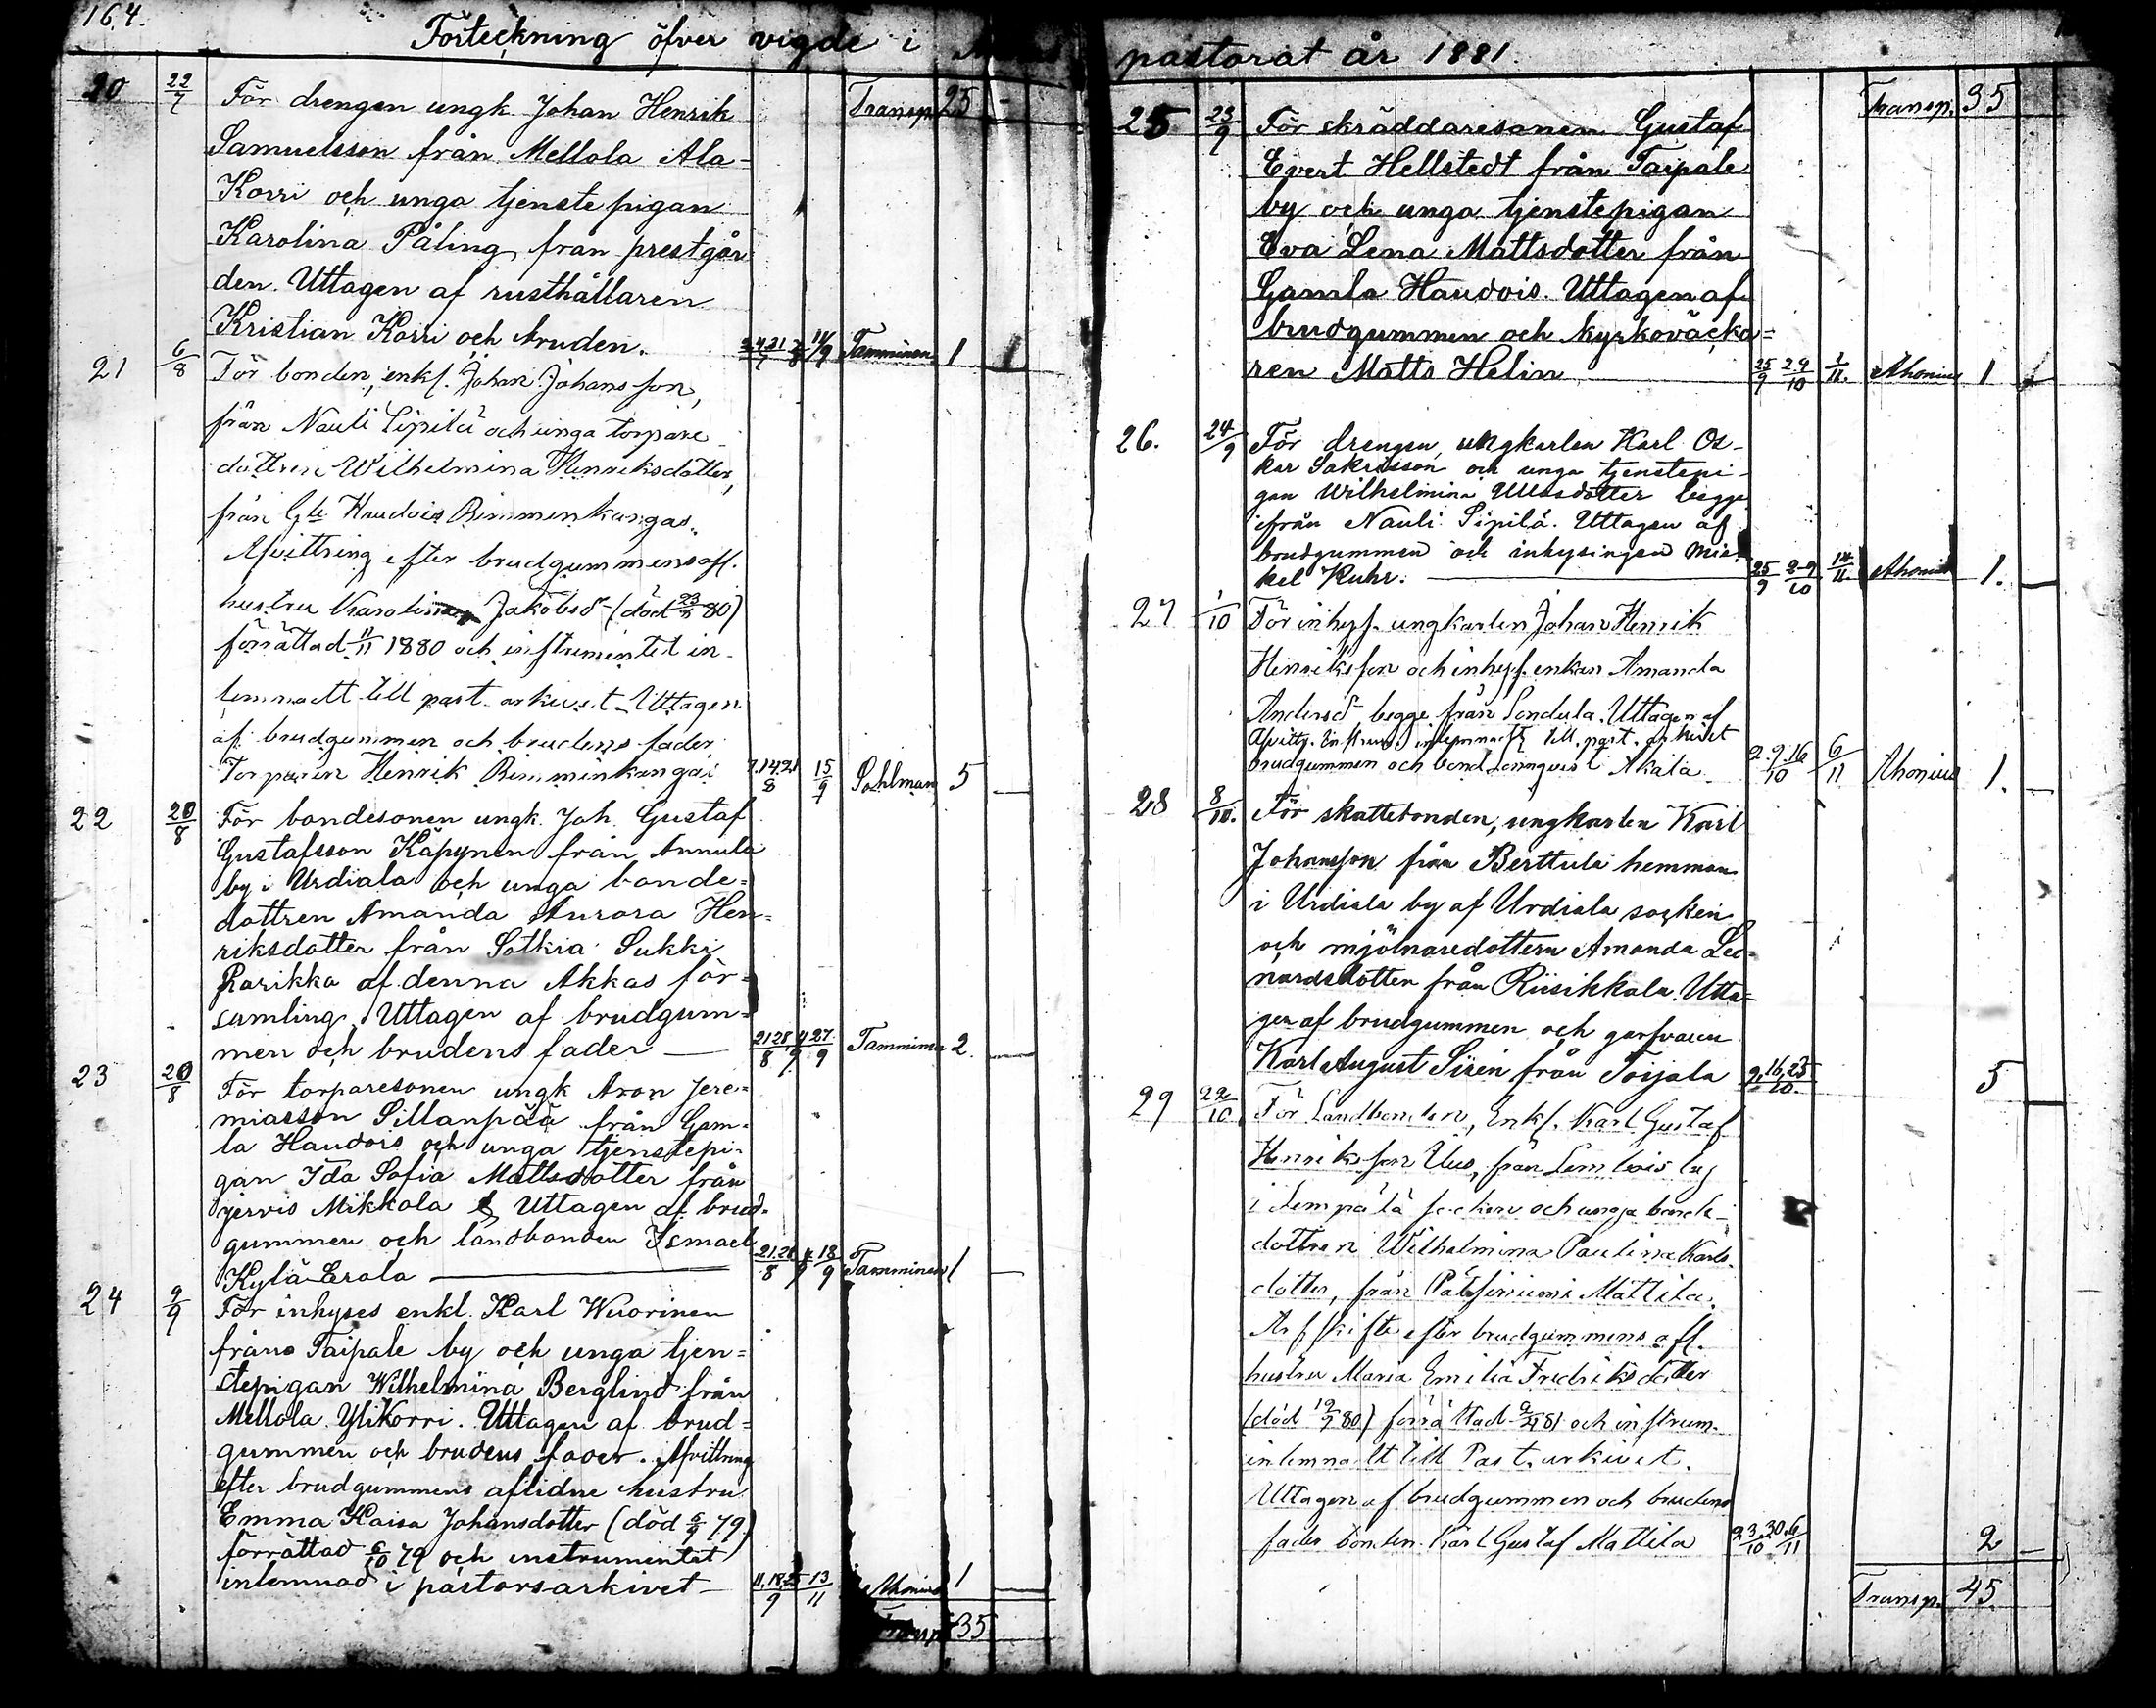 164.
Förteckning öfver vigde i
20 22/7 För drengen ungk. Johan Henrik Transp. 25
Samuelsson från Mellola Ala-
Korri och unga tjenstepigan
Karolina Påling från prestgår-
den. Uttagen af rusthållaren
Kristian Korri och bruden. Tamminen 1
21 6/8 För bonden, enkl. Johan Johansson,
från Nauli Sipilä och unga torpare-
dottren Wilhelmina Henriksdotter,
från Gla Haudois Rimminkangas.
Afvittring efter brudgummens afl.
hustru Karolina Jakobsd- (död 80)
förrättad 11/11 1880 och instrumentet in-
lemnadt till past. arkivet. Uttagen
af brudgummen och brudens fader
Torparen Henrik Rimminkangas 7.14.21/8 15/9 Sahlman 5
22 20/8 För bondesonen ungk. Joh. Gustaf
Gustafsson Käpynen från Annula
by i Urdiala och unga bonde=
dottren Amanda Aurora Hen=
riksdotter från Sotkia Sukki
Rarikka af denna Akkas för=
samling. Uttagen af brudgum=
men och brudens fader — 21 28/8 4/9 27/9 Tamminen 2.
23 20/8 För torparesonen ungk Aron Jere=
miasson Sillanpää från Gam=
la Haudois och unga tjenstepi=
gan Ida Sofia Mattsdotter från
Mikkola Uttagen af brud=
gummen och landbonden Ismael
Kylä Erola — 21.28/8 4/9 18/9 Tamminen 1
24 9/9 För inhyses enkl. Karl Wuorinen
från Taipale by och unga tjen=
stepigan Wilhelmina Berglind från
Mellola YliKorri. Uttagen af brud=
gummen och brudens fader. Afvittring
efter brudgummens aflidne hustru
Emma Kaisa Johansdotter (död 5/9 79)
förrättad 6/10 79 och instrumentet
inlemnad i pastorsarkivet — 11.18.25/9 13/11 Ahonius 1
Transp 35
pastorat år 1881.
25 23/9 För skräddaresonen Gustaf Transp. 35
Evert Hellstedt från Taipale
by och unga tjenstepigan
Eva Lena Mattsdotter från
Gamla Haudois. Uttagen af
brudgummen och kyrkoväcka=
ren Matts Helin 25/9 2 9/10 1/11. Ahonius 1
26. 24/9 För drengen, ungkarlen Karl Os-
kar Sakrisson och unga tjenstepi-
gan Wilhelmina begge
ifrån Nauli Sipilä. Uttagen af
brudgummen och inhysingen Mic-
kel Kuhr. — 25/9 2-9/10 14/11 Ahonius 1.
27 1/10 För inhys. ungkarlen Johan Henrik
Henriksson och inhys. enkan Amanda
Andersd- begge från Uttagen af
Afvittr. Instrum. inlemnadt till past. arkivet
brudgummen och bond Lönnqvist Akala 2.9.16/10 6/11 Ahonius 1.
28 8/10. För skattebonden, ungkarlen Karl
Johansson från Berttula hemman
i Urdiala by af Urdiala socken
och mjölnaredottern Amanda Leo=
nardsdotter från Riisikkala. Utta=
gen af brudgummen och garfvaren
Karl August Sirén från Toijala 9.16,23/10. 5
29 22/10. För Landbonden, Enkl. Karl Gustaf
Henriksson Uus, från Lembois by
i Lempälä socken och unga bonde-
dottren Wilhelmina Paulina Karls-
dotter, från Mattila.
Arfskifte efter brudgummens afl.
hustru Maria Emilia Fredriksdotter
(död 80) förrättad 81 och instrum.
inlemnadt till Past. arkivet.
Uttagen af brudgummen och brudens
fader bonden Karl Gustaf Mattila 23.30/10 6/11 2
Transp. 45